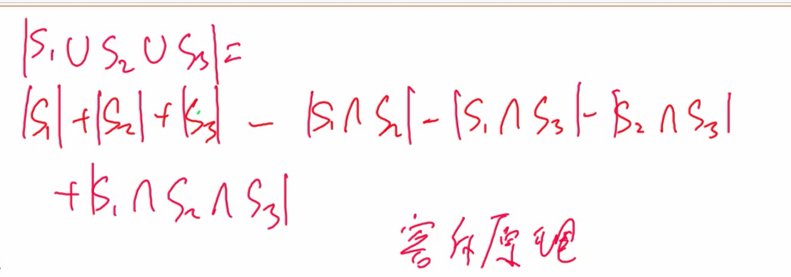 |S₁∪S₂∪S₃|=
|S₁|+|S₂|+|S₃| - |S₁∩S₂|-|S₁∩S₃|-|S₂∩S₃|
+|S₁∩S₂∩S₃|
容斥原理